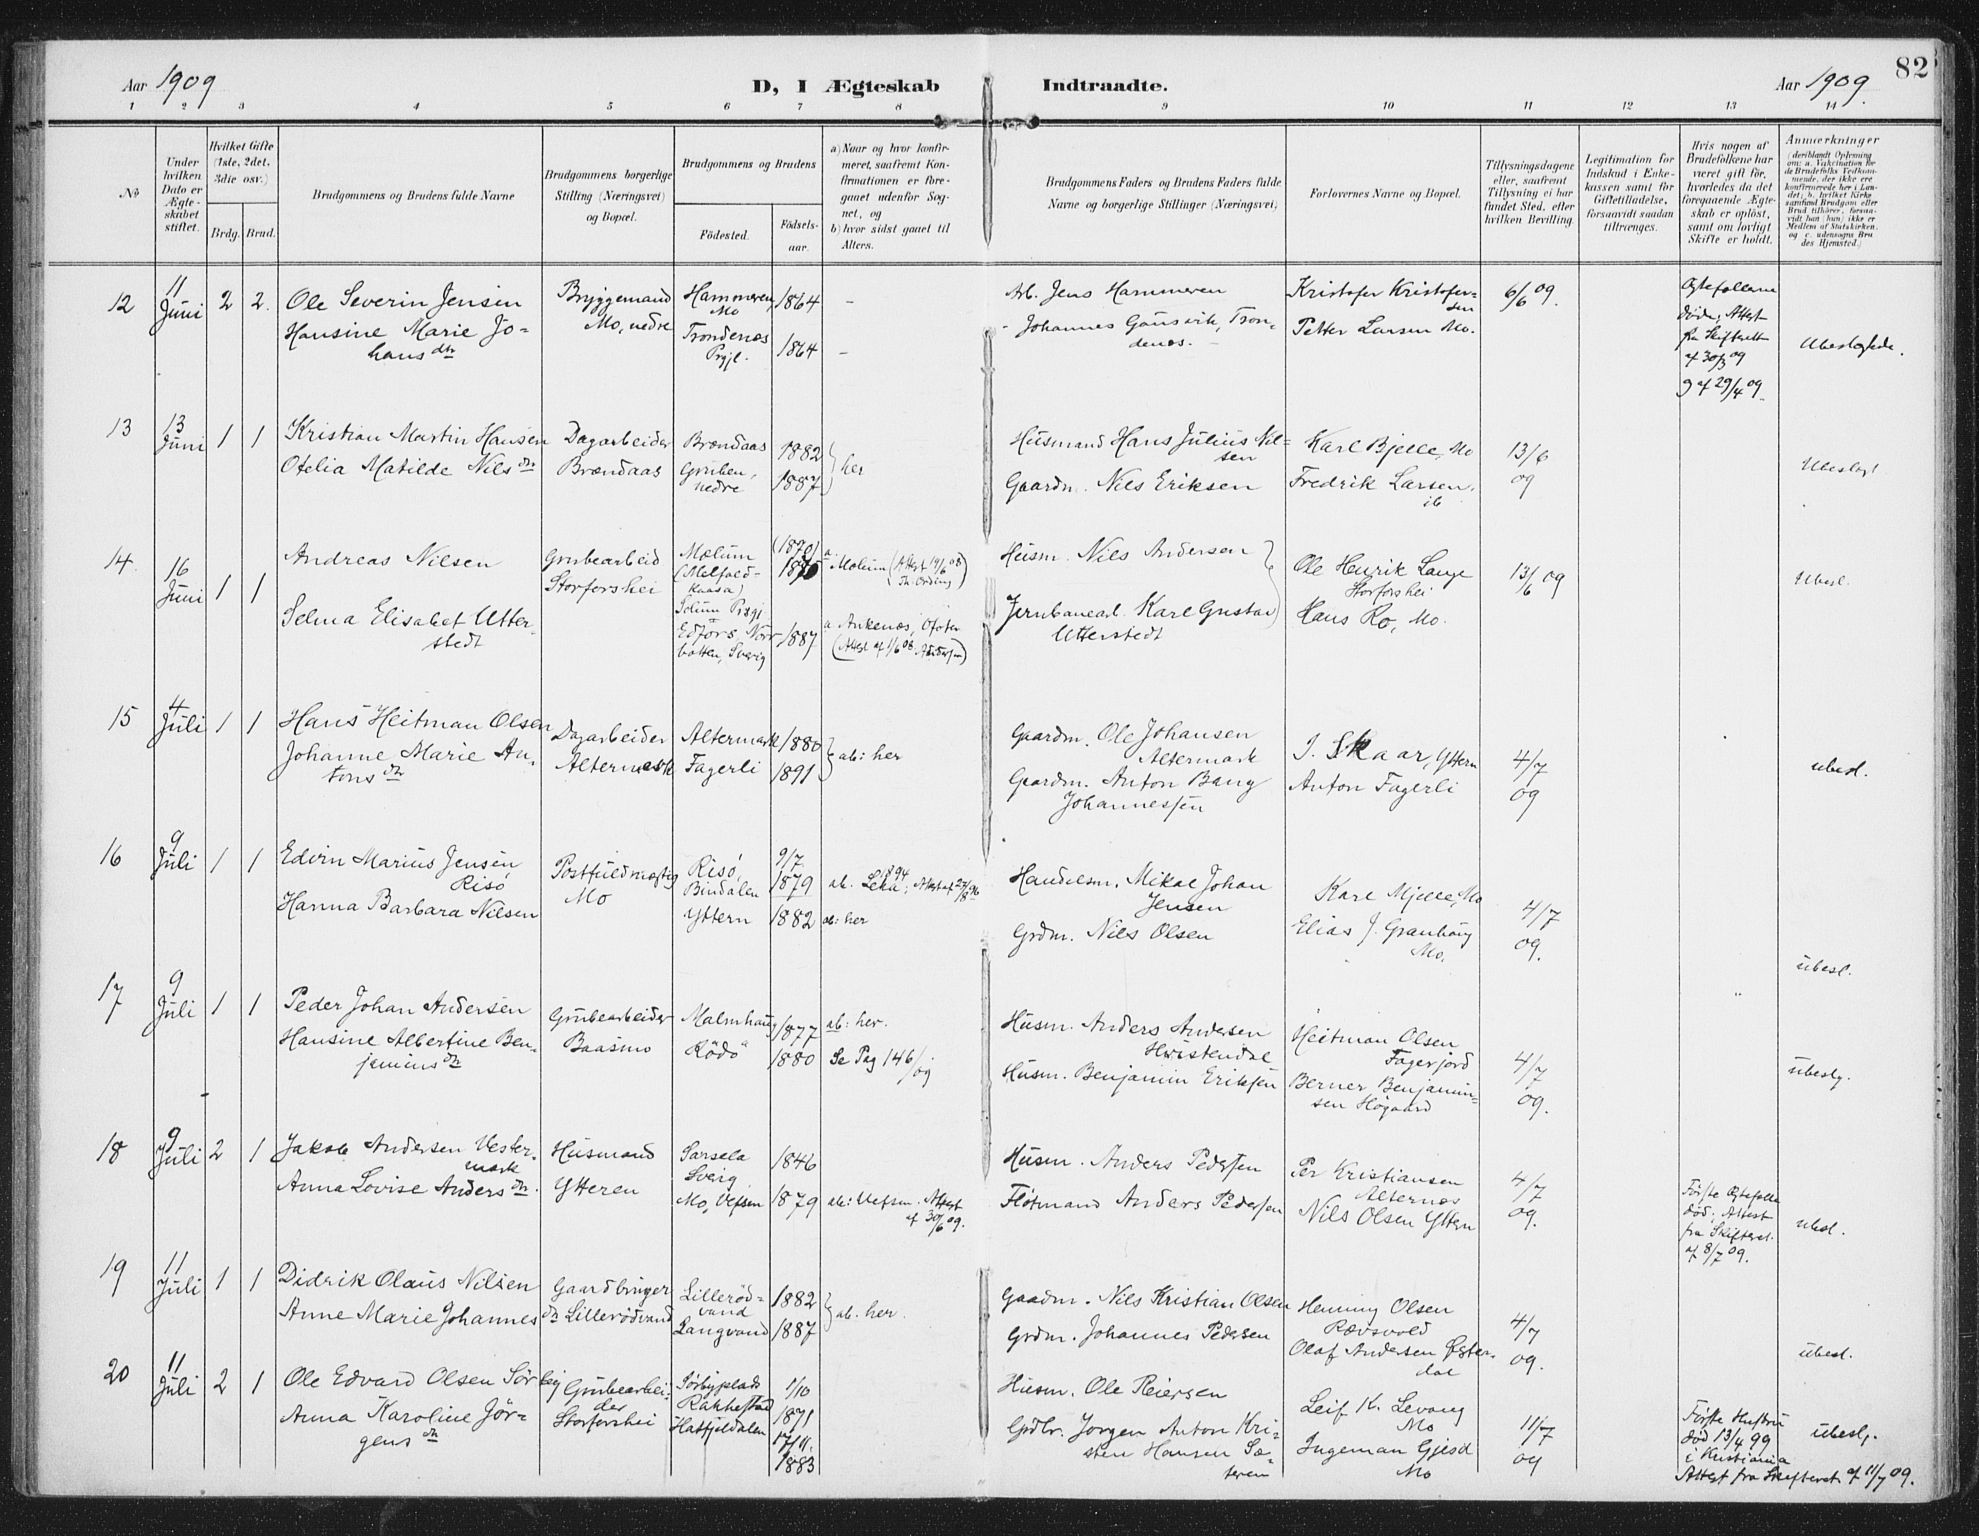 Aar 1909
D, I Ægteskab Indtraadte.
Aar 1909.
82
1 2 3 4 5 6 7 8 9 10 11 12 13 14
No
Under hvilken Dato er Ægteskabet stiftet.
Hvilket Gifte (1ste, 2det, 3die osv.)
Brdg. Brud.
Brudgommens og Brudens fulde Navne
Brudgommens borgerlige Stilling (Næringsvei) og Bopæl.
Brudgommens og Brudens
Fødested. Fødsels-aar.
a) Naar og hvor konfirmeret, saafremt Konfirmationen er foregaaet udenfor Sognet, og
b) hvor sidst gaaet til Alters.
Brudgommens Faders og Brudens Faders fulde Navne og borgerlige Stillinger (Næringsvei)
Forlovernes Navne og Bopæl.
Tillysningsdagene eller, saafremt Tillysning ei har fundet Sted, efter hvilken Bevilling
Legitimation for Indskud i Enkekassen samt for Giftetilladelse, forsaavidt saadan tiltrænges.
Hvis nogen af Brudefolkene har været gift før, hvorledes da det foregaaende Ægteskab er opløst, samt om lovligt Skifte er holdt.
Anmerkninger (deriblandt Oplysning om: a. Vakcination for de Brudefolks Vedkommende, der ikke ere konfirmerede her i Landet; b. hvilket Kirkesamfund Brudgom eller Brud tilhører, forsaavidt han (hun) ikke er Medlem af Statskirken, og c. udensogns Brudes Hjemsted.)
12 11 Juni 2 2. Ole Severin Jensen Bryggemand Mo, nedre Hammeren, Mo 1864 - Arb. Jens Hammeren Kristofer Kristofersen 6/6 09. Ægtefollerne døde; Attest fra Skifterett af 30/3 09 og af 29/4 09. Ubeslegtede.
Hansine Marie Johansdtr Trondenæs Prgjl. 1864 - Johannes Gausvik, Trondenæs. Petter Larsen Mo.
13 13 Juni 1 1 Kristian Martin Hansen Dagarbeider Brændaas Brændaas 1882 her Husmand Hans Julius Nilsen Karl Bjelle, Mo 13/6 09 Ubeslegt
Otelia Matilde Nilsdtr Gruben, nedre 1887 Gaardm. Nils Eriksen Fredrik Larsen, ib
14. 16 Juni 1 1 Andreas Nilsen Grubearbeid Storforshei Mælum (Melfald-kaasa) Solum Prgj. (1870) 1875 a. Mælum (Attest 14/6 08 Th. Ording) Husm. Nils Andersen Ole Henrik Lange Storforshei 13/6 09 Ubesl.
Selma Elisabet Utterstedt Edfors, Norrbotten, Sverig 1887 a Ankenæs, Ofoten (Attest af 1/6 08 Andersen) Jernbanearb. Karl Gustav Utterstedt Hans Ro, Mo.
15 4 Juli 1 1 Hans Heitman Olsen Dagarbeider Altermark Altermark 1880 ab: her Gaardm. Ole Johansen Altermark I. Skaar, Yttern 4/7 09 ubesl.
Johanne Marie Antonsdtr Fagerli 1891 Gaardm. Anton Bang Johannessen Anton Fagerli
16 9 Juli 1 1 Edvin Marius Jensen Risø Postfuldmægtig Mo Risø, Bindalen 9/7 1879 ab. Leka, 1894 Handelsm. Mikal Johan Jensen Karl Mjelle, Mo 4/7 09. ubesl.
Hanna Barbara Nilsen Yttern 1882 ab: her Grdm. Nils Olsen Elias J. Granhaug Mo.
17 9 Juli 1 1 Peder Johan Andersen Grubearbeider Baasmo Malmhaug 1877 ab: her. Husm. Anders Andersen Heitman Olsen Fagerjord 4/7 09. ubeslg.
Hansine Albertine Benjeminsdtr Rödö 1880 Se Pag 146/09 Husm. Benjamin Eriksen Berner Benjaminsen Høgaard
18 9 Juli 2 1 Jakob Andersen Vestermark Husmand Ytteren Sarsela Sverig 1846 Husm. Anders Pedersen Per Kristiansen Alternes 4/7 09. Første Ægtefolle død: Attest fra Skifteret. af 8/7 09. ubesl.
Anna Lovise Andersdtr. Mo, Vefsen 1879 ab: Vefsn. Attest af 30/6 09. Fløtmand Anders Pedersen Nils Olsen Yttern
19 11 Juli 1 1 Didrik Olaus Nilsen Gaardbruger Lillerødvand Lillerødvand 1882 ab. her. Gaadm. Nils Kristian Olsen Henning Olsen Rævsvold 4/7 09. ubesl.
Anne Marie Johannesdtr Langvand 1887 Grdm. Johannes Pedersen Olaf Andersen Østerdal
20 11 Juli 2 1 Ole Edvard Olsen Sørbey Grubearbeider Storforshei Sørbyplads Rakkestad 1/10 1871 Husm. Ole Reiersen Leif K. Levang Mo 11/7 09 Første Hustru død 13/4 99 i Kristiania Attest fra Skifteret af 11/7 09. ubeslg.
Anna Karoline Jörgensdtr Hatfjeldalen 17/11. 1883 Gdbr. Jorgen Anton Kristen Hansen Sæteren Ingeman Gjesd Mo